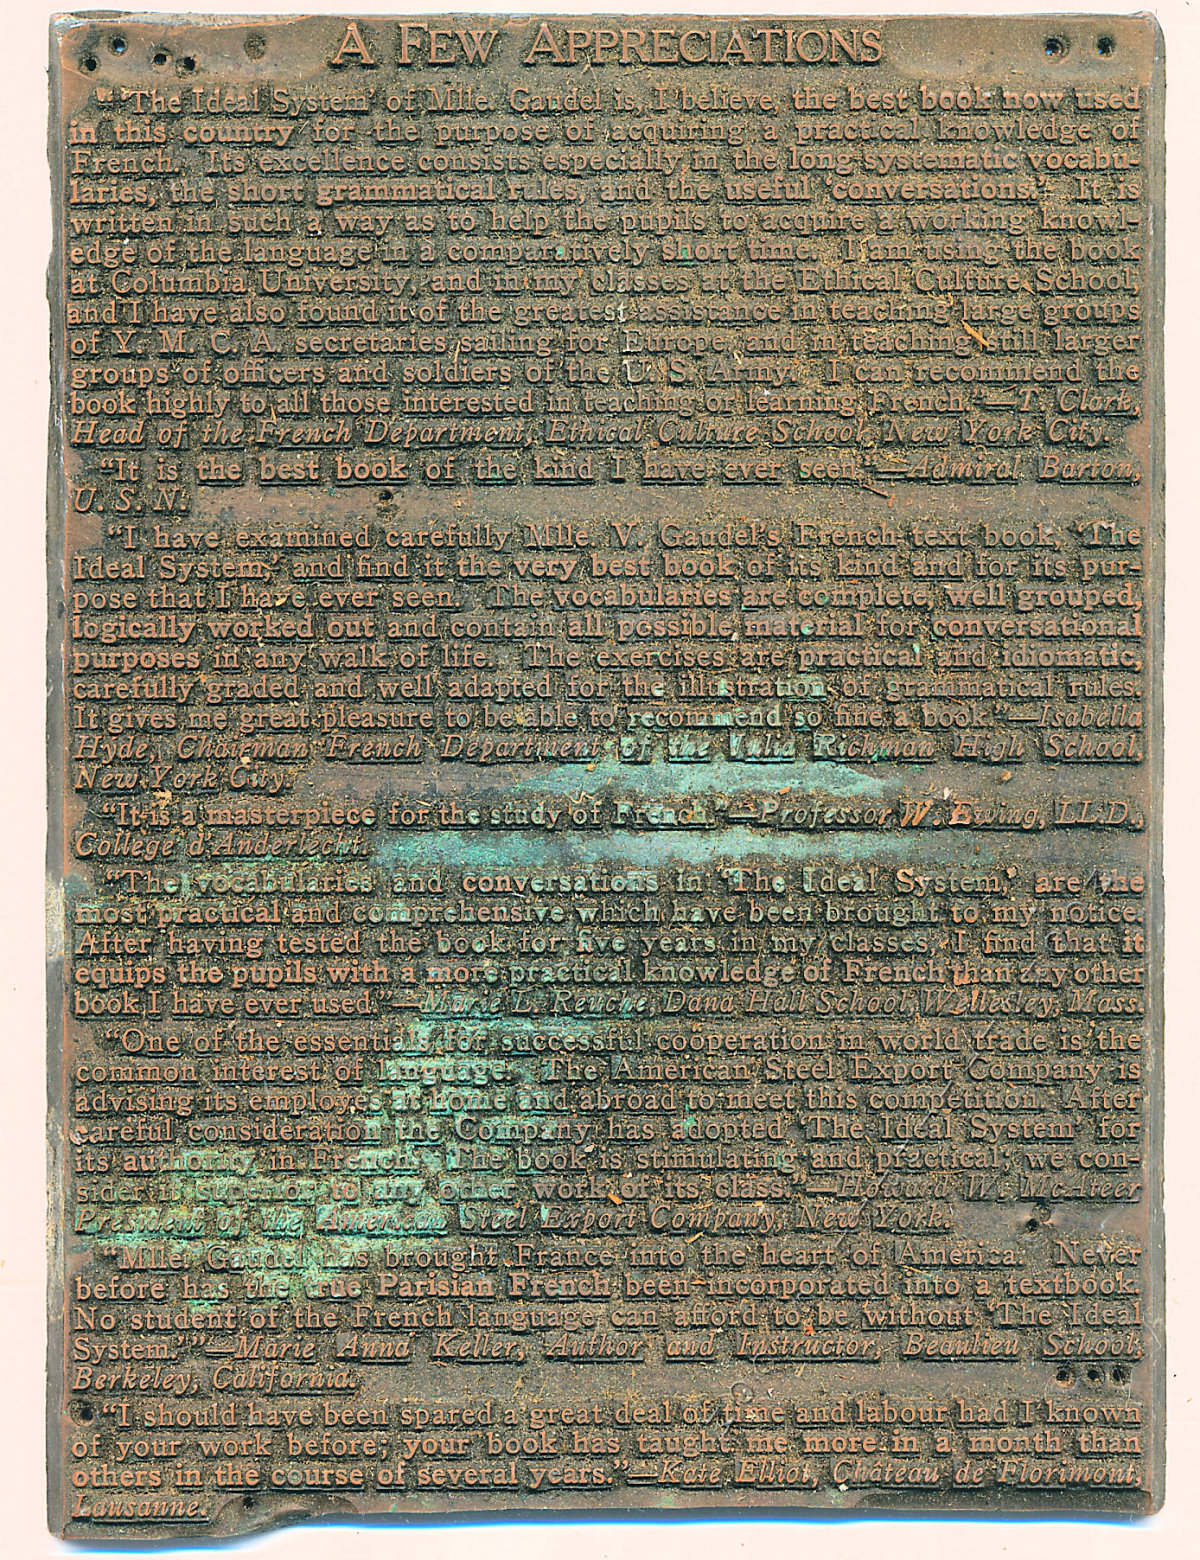 A FEW APPRECIATIONS
"'The Ideal System' of Mlle. Gaudel is, I believe, the best book now used
in this country for the purpose of acquiring a practical knowledge of
French. Its excellence consists especially in the long systematic vocabu-
laries, the short grammatical rules, and the useful 'conversations.' It is
written in such a way as to help the pupils to acquire a working knowl-
edge of the language in a comparatively short time. I am using the book
at Columbia University, and in my classes at the Ethical Culture School,
and I have also found it of the greatest assistance in teaching large groups
of Y. M. C. A. secretaries sailing for Europe, and in teaching still larger
groups of officers and soldiers of the U. S. Army. I can recommend the
book highly to all those interested in teaching or learning French."—T. Clark,
Head of the French Department, Ethical Culture School, New York City.
"It is the best book of the kind I have ever seen."—Admiral Barton,
U. S. N.
"I have examined carefully Mlle. V. Gaudel's French text book, 'The
Ideal System,' and find it the very best book of its kind and for its pur-
pose that I have ever seen. The vocabularies are complete, well grouped,
logically worked out and contain all possible material for conversational
purposes in any walk of life. The exercises are practical and idiomatic,
carefully graded and well adapted for the illustration of grammatical rules.
It gives me great pleasure to be able to recommend so fine a book."—Isabella
Hyde, Chairman French Department of the Julia Richman High School,
New York City.
"It is a masterpiece for the study of French."—Professor W. Ewing, LL.D.,
College d'Anderlecht.
"The vocabularies and conversations in 'The Ideal System,' are the
most practical and comprehensive which have been brought to my notice.
After having tested the book for five years in my classes, I find that it
equips the pupils with a more practical knowledge of French than any other
book I have ever used."—Marie L. Reuche, Dana Hall School, Wellesley, Mass.
"One of the essentials for successful coöperation in world trade is the
common interest of language. The American Steel Export Company is
advising its employes at home and abroad to meet this competition. After
careful consideration the Company has adopted 'The Ideal System' for
its authority in French. The book is stimulating and practical; we con-
sider it superior to any other work of its class."—Howard W. McAteer
President of the American Steel Export Company, New York.
"Mlle. Gaudel has brought France into the heart of America. Never
before has the true Parisian French been incorporated into a textbook.
No student of the French language can afford to be without 'The Ideal
System.'"—Marie Anna Keller, Author and Instructor, Beaulieu School,
Berkeley, California.
"I should have been spared a great deal of time and labour had I known
of your work before; your book has taught me more in a month than
others in the course of several years."—Kate Elliot, Château de Florimont,
Lausanne.